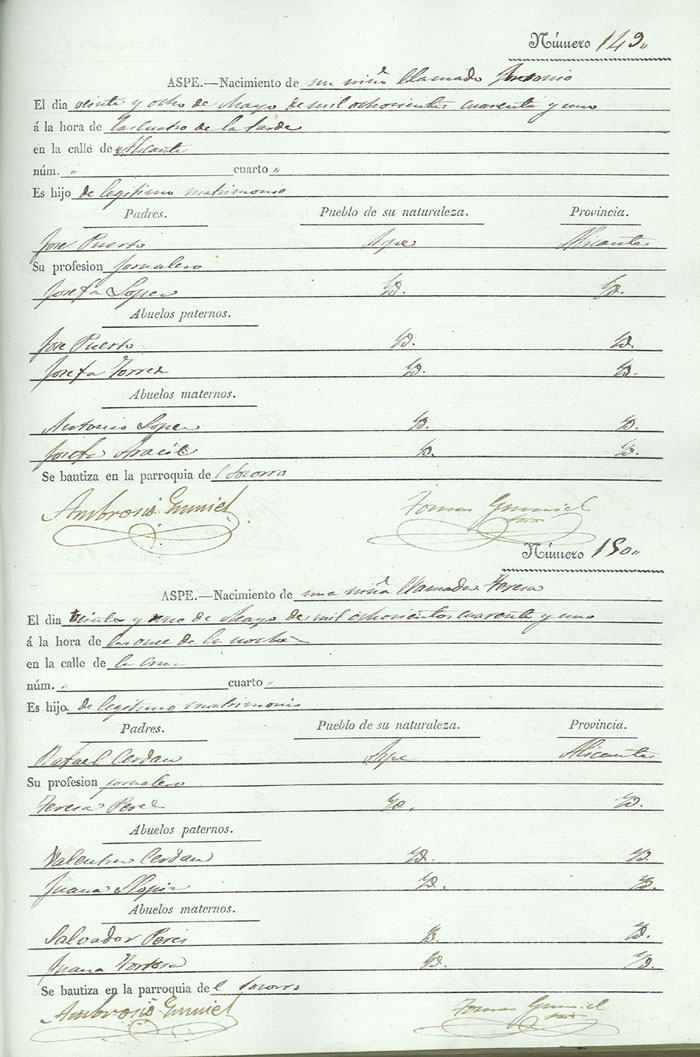 Número 149„
ASPE.—Nacimiento de un niño llamado Antonio
El dia veinte y ocho de Mayo de mil ochocientos cuarenta y uno
á la hora de las cuatro de la tarde
en la calle de Alicante
núm. „ cuarto „
Es hijo de legitimo matrimonio
Padres. Pueblo de su naturaleza. Provincia.
Jose Puerto Aspe Alicante
Su profesion jornalero
Josefa Lopez Yd. Yd.
Abuelos paternos.
Jose Puerto Yd. Yd.
Josefa Torres Yd. Yd.
Abuelos maternos.
Antonio Lopez Yd. Yd.
Josefa Aracil Yd. Yd.
Se bautiza en la parroquia del Socorro
Ambrosio Gumiel Tomas Gumiel
Número 150„
ASPE.—Nacimiento de una niña llamada Teresa
El dia veinte y nueve de Mayo de mil ochocientos cuarenta y uno
á la hora de las once de la noche
en la calle de la
núm. „ cuarto
Es hijo de legitimo matrimonio
Padres. Pueblo de su naturaleza. Provincia.
Rafael Cerdan Aspe Alicante
Su profesion jornalero
Teresa Perez Yd. Yd.
Abuelos paternos.
Valentin Cerdan Yd. Yd.
Juana Yd. Yd.
Abuelos maternos.
Salvador Peres Yd. Yd.
Juana Yd. Yd.
Se bautiza en la parroquia del Socorro
Ambrosio Gumiel Tomas Gumiel